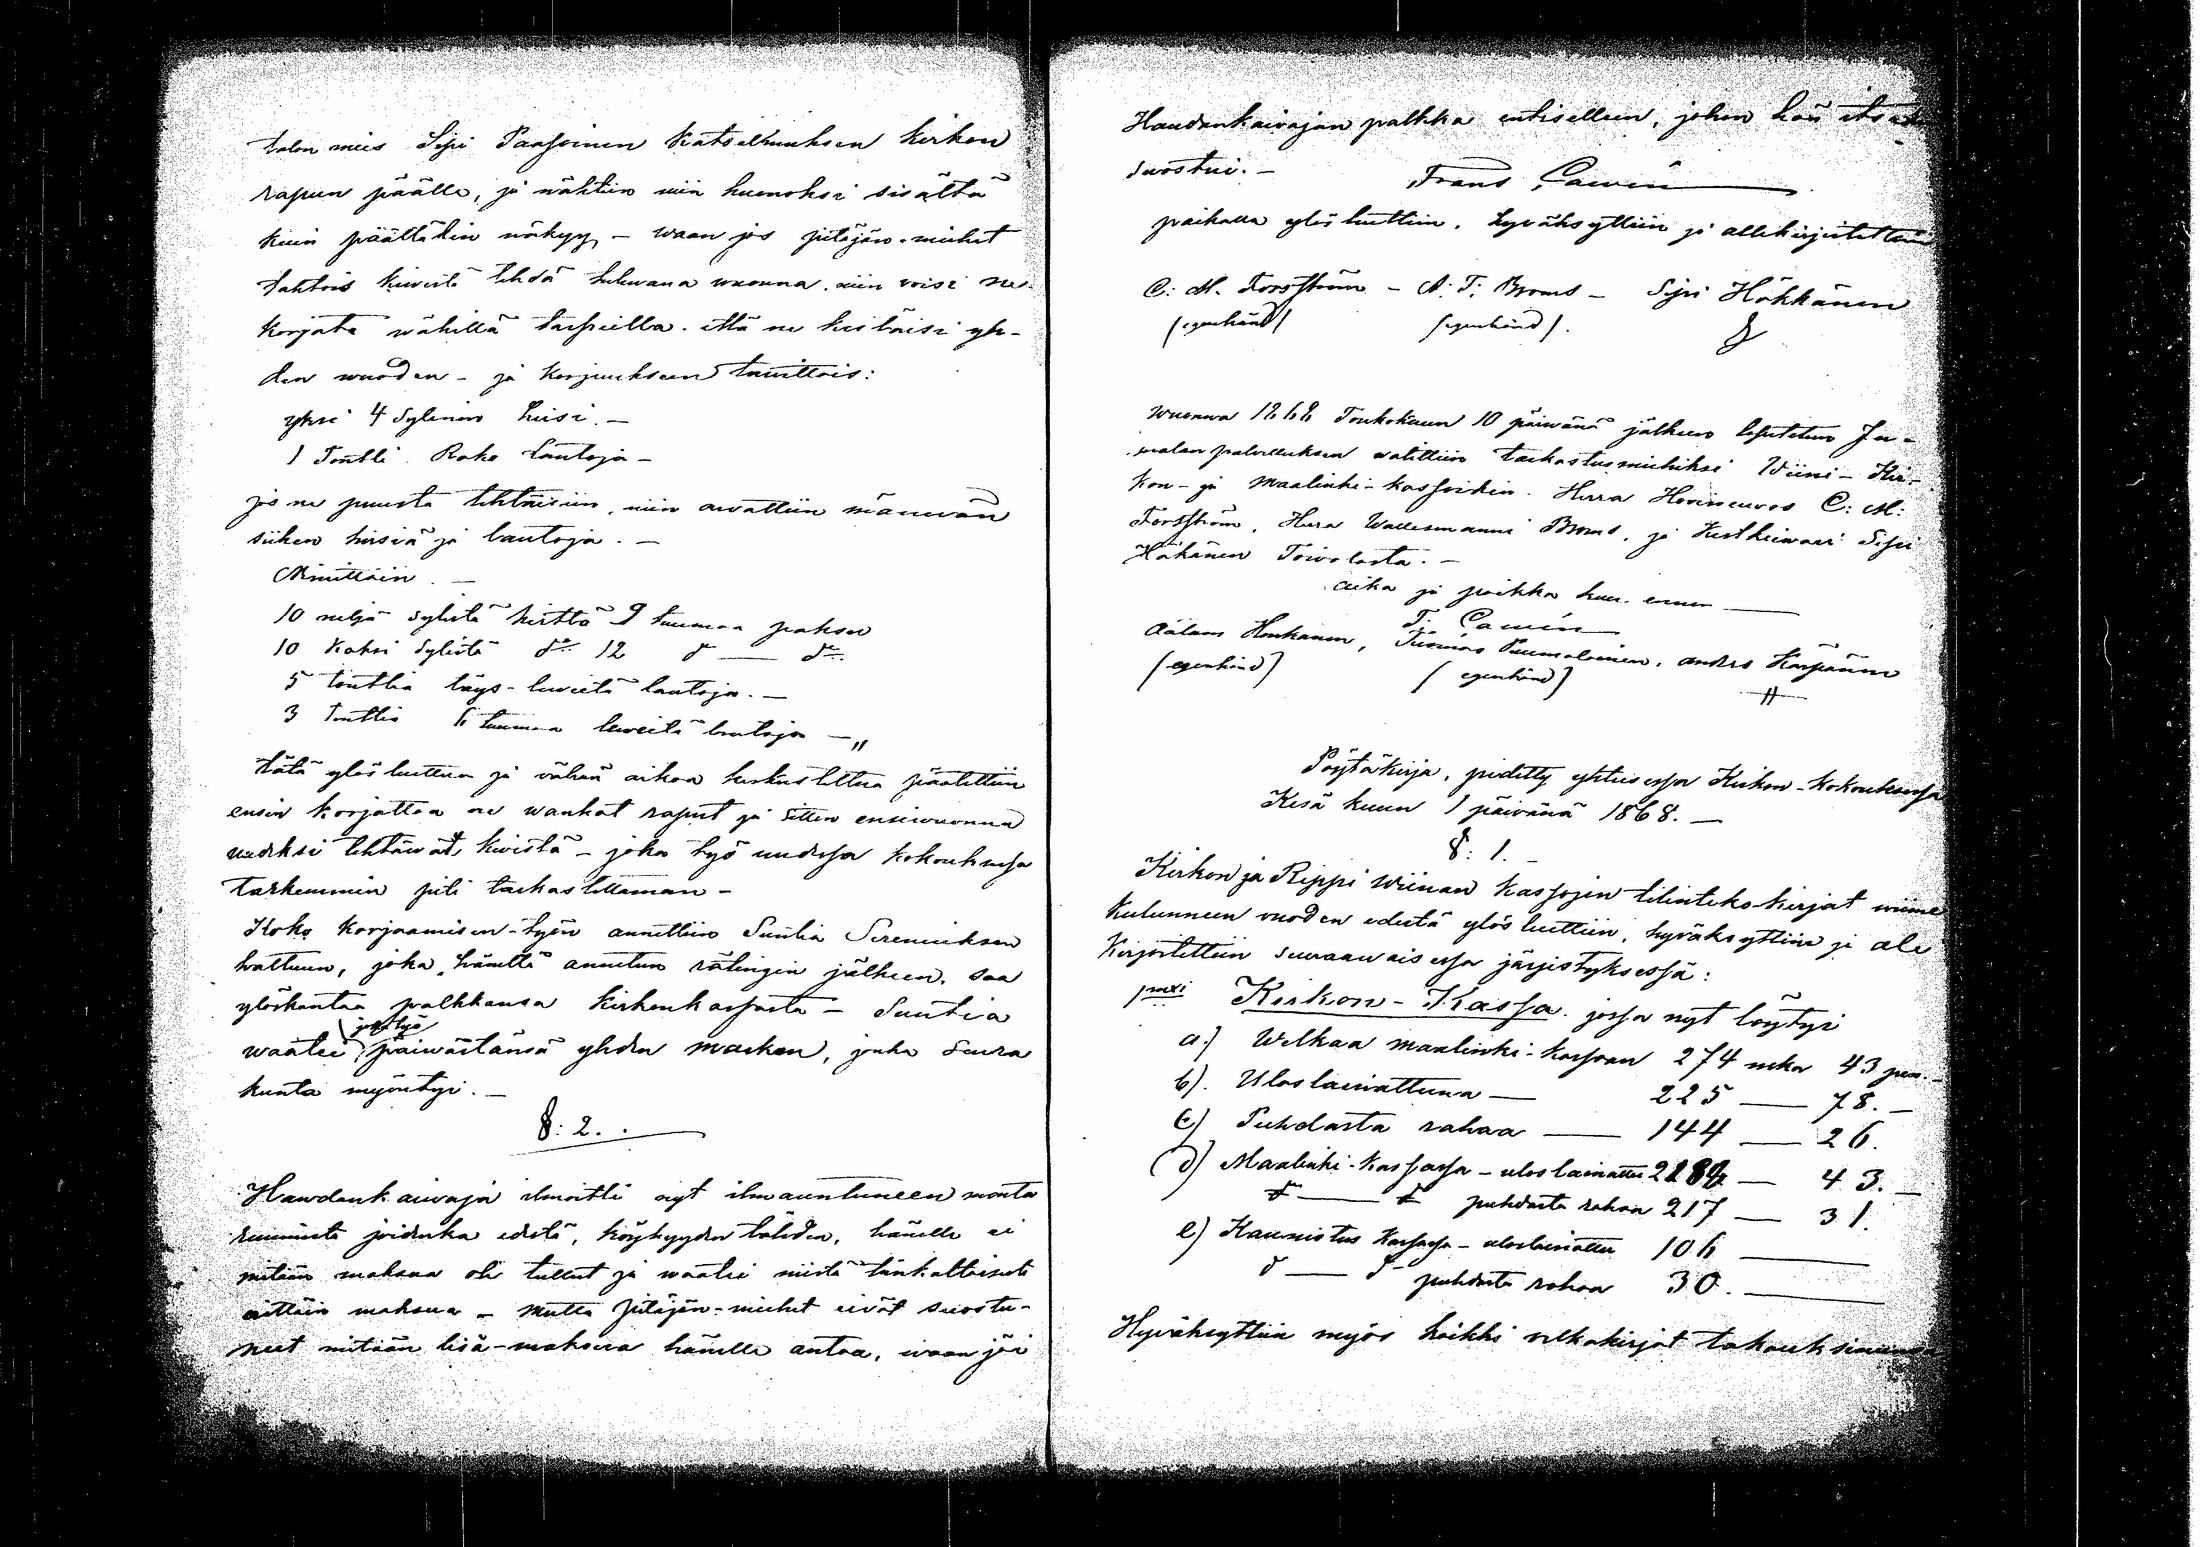 talon mies Sipi Paasoinen Katselmuksen Kirkon
rapun päälle, ja nähtiin niin huonoksi sisältä
kuin päältäkin näkyy – waan jos pitäjän-miehet
tahtois kiwestä tehdä tulewana wuonna, niin voisi ne
korjata wähillä tarpeilla. että ne kestäisi yh-
den wuoden – ja korjuukseen tarwittois:
yksi 4 Sylinen hirsi. –
1 Tontli Rako lautoja –
jos ne puusta tehtäisiin, niin arvattiin mänewän
siihen hirsiä ja lautoja. –
Nimittäin. –
10 neljä sylistä hirttä 9 tuumaa paksu
10 Kaksi Sylistä do 12 d — do
5 tontlia täys-leweitä lautoja. –
3 tontlia 6 tuumaa leweitä lautoja – „
Tätä ylös luettua ja vähän aikaa keskusteltua päätettiin
ensin korjattaa ne wanhat raput ja sitten ensiwuonna
uudeksi tehtäwät kivistä – joka työ uudessa kokouksessa
tarkemmin piti tarkastettaman –
Koko korjaamisen-työn annettiin Suntia Sireniuksen
haltuun, joka, häneltä annetun rätingin jälkeen, saa
ylöskantaa palkkansa kirkonkassasta – Suntia
jost työ
waatii päiwästänsä yhden markan, jonka Seura
kunta myöntyi. –
§: 2. .
Hawdankaiwaja ilmoitti nyt ilmaantuneen monta
ruumista joidenka edestä, köyhyyden tähden, hänelle ei
mitään maksua ole tullut ja waatii niistä tänkaltaisista
jittäin maksua – mutta Pitäjän-miehet eivät suostu-
neet mitään lisä-maksua hänelle antaa, waan jäi
Haudankaiwajan palkka entisellen, johon hän itse
suostui. –
Frans Cawén
paikalla ylös luettiin, hyväksyttiin ja allekirjoitettiin
C: M. Forsström – A. T. Broms – Sipi Hökkänen
(egenhänd) (egenhänd).
wuonna 1868 Toukokuun 10 päiwänä jälkeen lopetetun Ju-
malan palveluksen walittiin tarkastusmiehiksi Wiini- Kir-
kon- ja Maalinki-kassoihin. Herra Hovineuvos C: M:
Forsström, Herra Wallesmanni Broms, ja Kestkiewari Sipi
Häkänen Toivolasta. –
aika ja paikka kuu. ennen —
F: Cawén
Adam Honkanen, Tuomas Puumalainen, anders Karpänen
(egenhänd) (egenhänd)
Pöytäkirja, pidetty yhteisessä Kirkon-Kokouksessa
Kesä kuun 1 päivänä 1868. –
§: 1. –
Kirkon ja Rippi Wiinan Kassojen tilinteko-kirjat wiime
kulunneen vuoden edestä ylös luettiin, hyväksyttiin ja ale
kirjoitettiin seuraawaisessa järjestyksessä:
1maxi Kirkon-Kassa. jossa nyt löytyi
a.) Welkaa maalinki-kassaan 274 mka 43 pen. –
b). Ulos lainattuna — 225 — 78. –
c) Puhdasta rahaa — 144 — 26.
d) Maalinki-kassassa – ulos lainattu 2184 — 43. –
d — d puhdasta rahaa 217 — 31.
e) Kaunistus kassassa – uloslainattu 106 —
d — d puhdasta rahaa 30. —
Hyväksyttiin myös kaikki velkakirjat